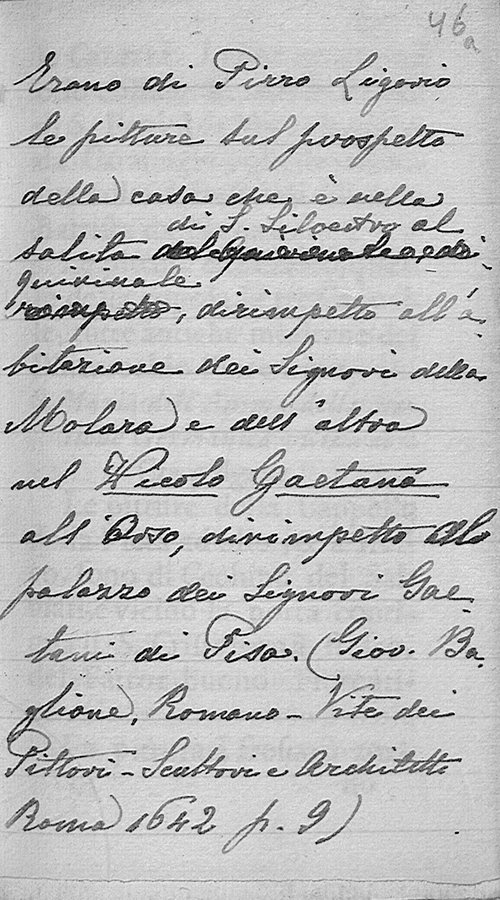 46a
Erano di Pirro Ligorio
le pitture sul prospetto
della casa che è nella
di S. Silvestro al
salita
quirinale
, dirimpetto all'a
bitazione dei Signori della
Molara e dell'altra
nel Vicolo Gaetana
all'Orso, dirimpetto allo
palazzo dei Signori Gae
tani di Pisa. (Giov. Ba
glione, Romano - Vite dei
Pittori - Scultori e Architetti
Roma 1642 p. 9)